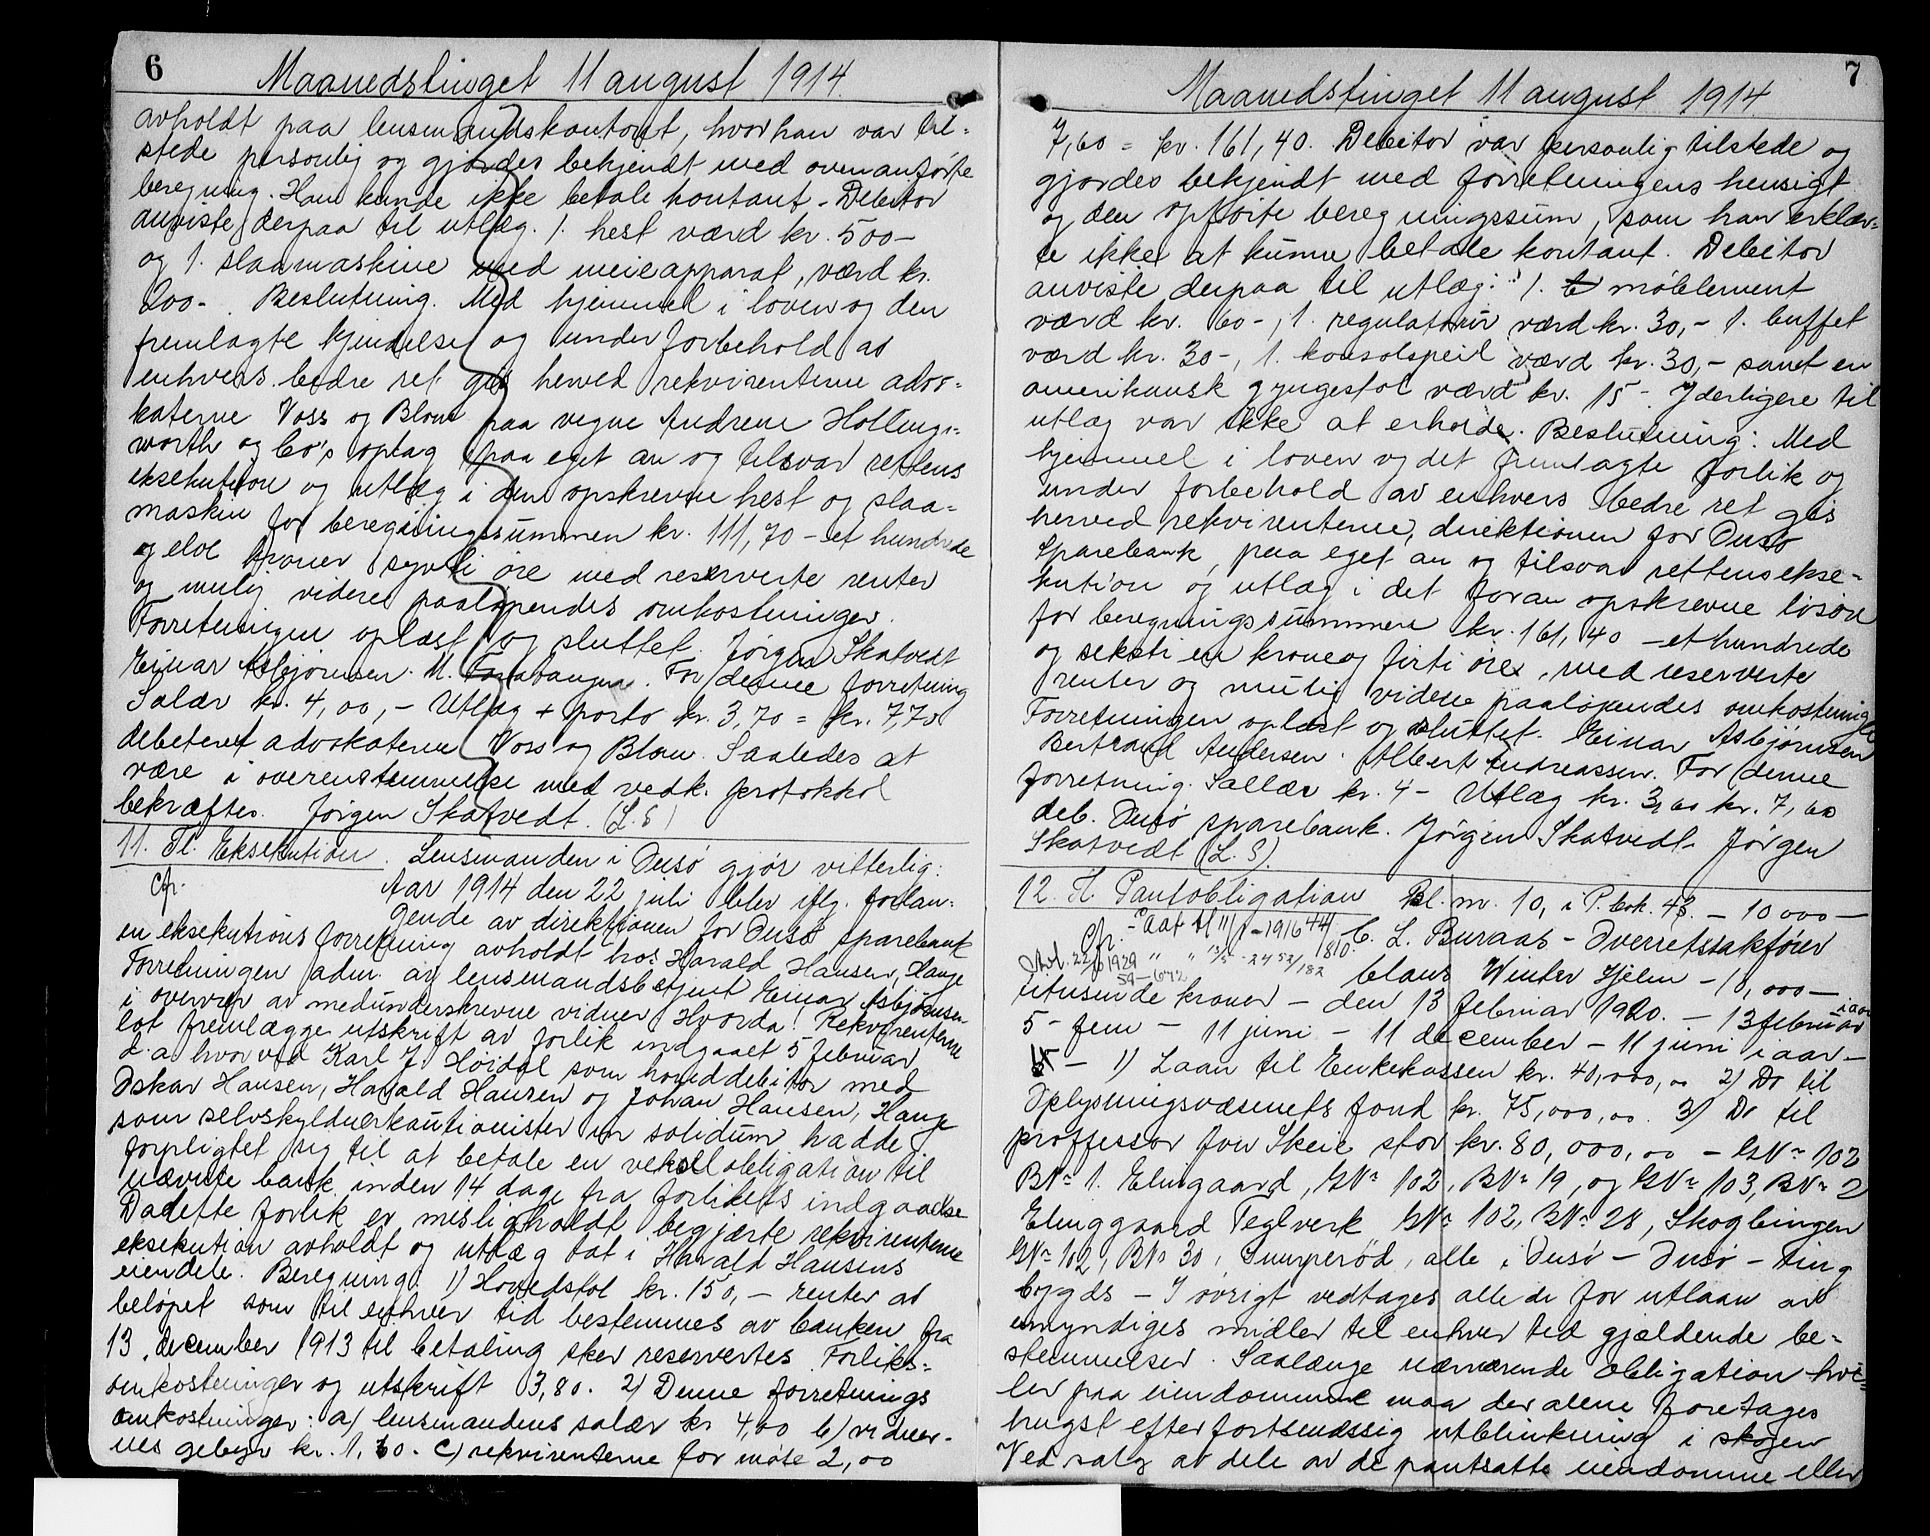 6
Maanedstinget 11 august 1914.
avholdt paa lensmandskontoret, hvor han var til-
stede personlig og gjordes bekjendt med ovenanførte
beregning. Han kunde ikke betale kontant. Debitor
anviste derpaa til utlæg. 1. hest værd kr. 500-
og 1. slaamaskine med meieapparat, værd kr.
200-. Beslutning. Med hjemmel i loven og den
fremlagte kjendelse og under forbehold av
enhvers bedre ret gis herved rekvirenterne advo-
katerne Voss og Blom paa vegne Andrene Hollings-
worth og Co's oplag paa eget an og tilsvar rettens
eksekution og utlæg i den opskrevne hest og slaa-
maskin for beregningssummen kr. 111,70 - et hundrede
og elve kroner sytti øre med reserverte renter
og mulig videre paaløpendes omkostninger.
Forretningen oplæst og sluttet. Jørgen Skatvedt
Einar Asbjørnsen. M. For denne forretning
Salær kr. 4,00,- Utlæg + porto kr. 3,70 = kr. 7,70
debeteret advokaterne Voss og Blom. Saaledes at
være i overensstemmelse med vedk. protokkol
bekræftes. Jørgen Skatvedt. (L.S)
11. Tl. Eksekution. Lensmanden i Onsø gjør vitterlig:
Cfr. Aar 1914 den 22 juli blev iflg. forlan-
gende av direktionen for Onsø sparebank
en eksekutionsforretning avholdt hos Harald Hansen, Hauge
Forretningen adm. av lensmandsbetjent Einar Asbjørnsen
i overvær av medunderskrevne vidner Hvorda! Rekvirenterne
lot fremlægge utskrift av forlik indgaaet 5 februar
d.a. hvorved Karl J. Høidal som hoveddebitor med
Oskar Hansen, Harald Hansen og Johan Hansen, Hauge
som selvskyldnerkautionister in solidum hadde
forpligtet sig til at betale en vekselobligation til
nævnte bank inden 14 dage fra forlikets indgaaelse
Da dette forlik er misligholdt begjærte rekvirenterne
eksekution avholdt og utlæg tat i Harald Hansens
eiendele. Beregning: 1) Hovedstol kr. 150,- renter av
beløpet som til enhver tid bestemmes av banken fra
13. december 1913 til betaling sker reservertes. Forliks-
omkostninger og utskrift 3,80. 2) Denne forretnings
omkostninger: a) lensmandens salær kr 4,00 b) vidner-
nes gebyr kr. 1,60. c) rekvirenterne for møte 2,00
7
Maanedstinget 11 august 1914
7,60 = kr. 161,40. Debitor var personlig tilstede og
gjordes bekjendt med forretningens hensigt
og den opførte beregningssum, som han erklær-
te ikke at kunne betale kontant. Debitor
anviste derpaa til utlæg: 1. møblement
værd kr. 60-, 1. regulatorur værd kr. 30,- 1. buffet
værd kr. 30-, 1. konsolspeil værd kr. 30,- samt en
amerikansk gyngestol værd kr. 15-. Yderligere til
utlæg var ikke at erholde. Beslutning: Med
hjemmel i loven og det fremlagte forlik og
under forbehold av enhvers bedre ret gis
herved rekvirenterne, direktionen for Onsø
Sparebank, paa eget an og tilsvar rettens ekse-
kution og utlæg i det foran opskrevne løsøre
for beregningssummen kr. 161,40 - et hundrede
og seksti en krone og firti øre, med reserverte
renter og mulig videre paaløpendes omkostninger
Forretningen oplæst og sluttet. Einar Asbjørnsen
Bertrand Andersen. Albert Andreassen. For denne
forretning. Sallær kr. 4- Utlæg kr. 3,60 kr. 7,60
deb. Onsø sparebank. Jørgen Skatvedt. Jørgen
Skatvedt (L.S).
12. Tl. Pantobligation Bl. nr. 10, i P.bok. 43. - 10 000-
Cfr. C. L. Buraas - Overretssakfører
Avl. 22/6 1929 Claus Winter Hjelm - 10,000-
titusinde kroner - den 13 februar 1920. - 13 februar i aar
5 - fem - 11 juni - 11 december - 11 juni i aar -
- 1) Laan til Enkekassen kr. 40,000,00 2) Do til
Oplysningsvæsenets fond kr. 75,000,00. 3) Do til
proffessor fru Skeie stor kr. 80,000,00 - GNr 102
BNr 1. Elingaard, GNr 102, BNr 19, og GNr 103, BNr 2
Elinggaard Teglverk GNr 102, BNr 28, Skogbingen
GNr 102, BNr 30, Sumperød, alle i Onsø - Onsø - ting
bygds - I øvrigt vedtages alle de for utlaan av
umyndiges midler til enhver tid gjældende be-
stemmelser. Saalænge nærværende obligation hvi-
ler paa eiendommene maa der alene foretages
hugst efter forstmæssig utblinkning i skogen
Ved salg av dele av de pantsatte eiendomme eller